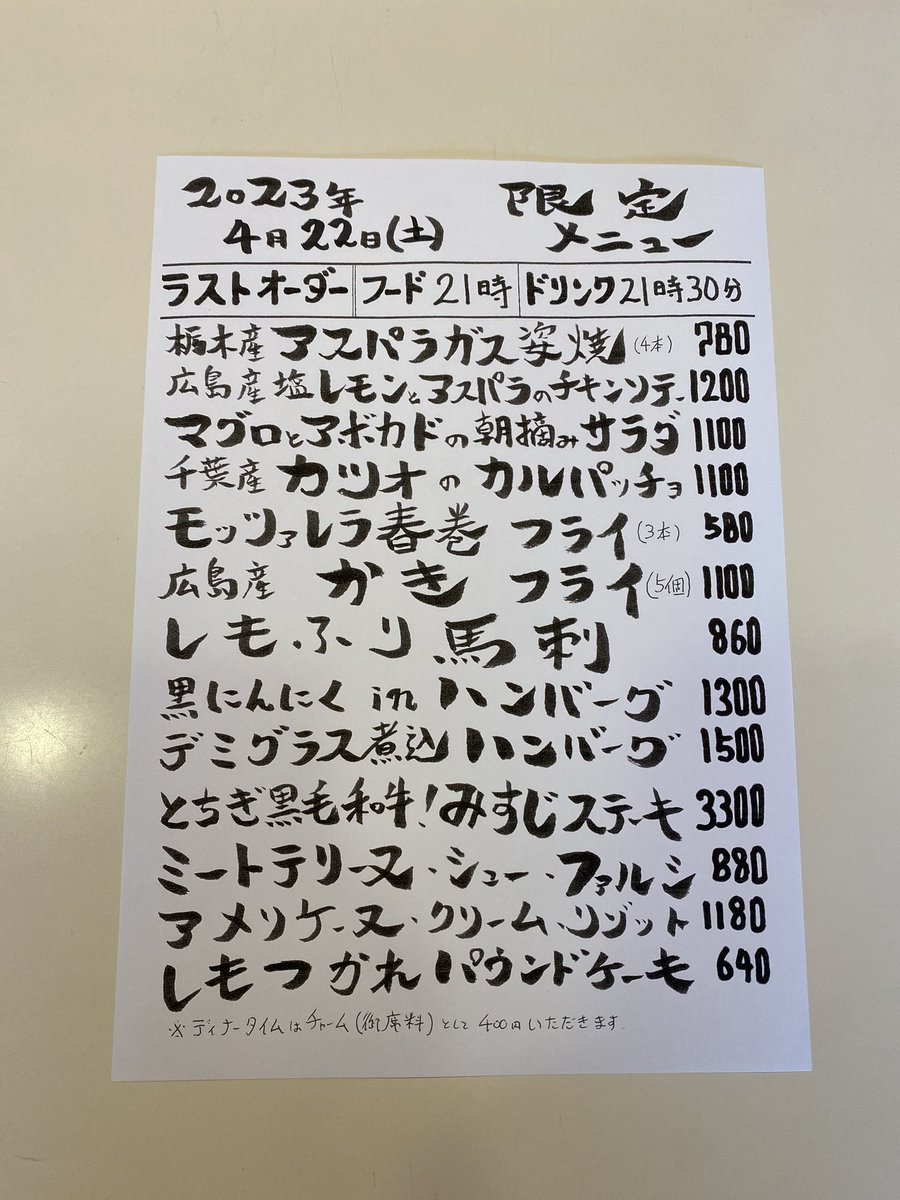 2023年 限定
4月22日(土) メニュー
ラストオーダー フード21時 ドリンク21時30分
栃木産 アスパラガス姿焼(4本) 780
広島産塩レモンとアスパラのチキンソテー 1200
マグロとアボカドの朝摘みサラダ 1100
千葉産 カツオのカルパッチョ 1100
モッツァレラ春巻 フライ(3本) 580
広島産 かき フライ(5個) 1100
しもふり馬刺 860
黒にんにく in ハンバーグ 1300
デミグラス煮込ハンバーグ 1500
とちぎ黒毛和牛!みすじステーキ 3300
ミートテリーヌ・シュー・ファルシ 880
アメリケーヌ・クリーム・リゾット 1180
しもつかれパウンドケーキ 640
※ディナータイムはチャーム(御席料)として400円いただきます.